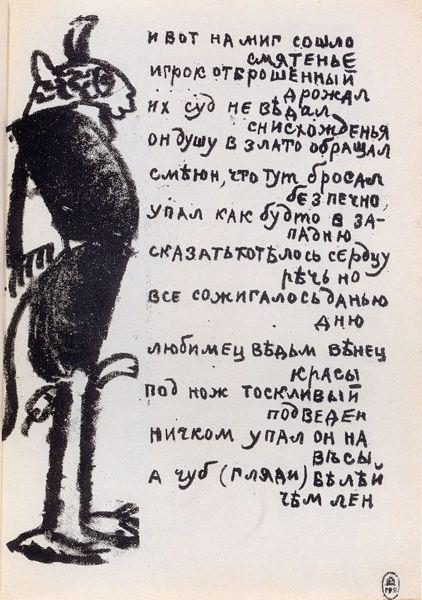 и вот на миг сошло
смятенье
игрок отброшенный
дрожал
их суд не вѣдал
снисхожденья
он душу в злато обращал
смѣюн, что тут бросал
безпечно,
упал как будто в за-
падню
сказать хотѣлось сердцу
рѣчь но
все сожигалось данью
дню
любимец вѣдьм вѣнец
красы
под нож тоскливый
подведен
ничком упал он на
вѣсы
а чуб (гляди) бѣлѣй
чѣм лен